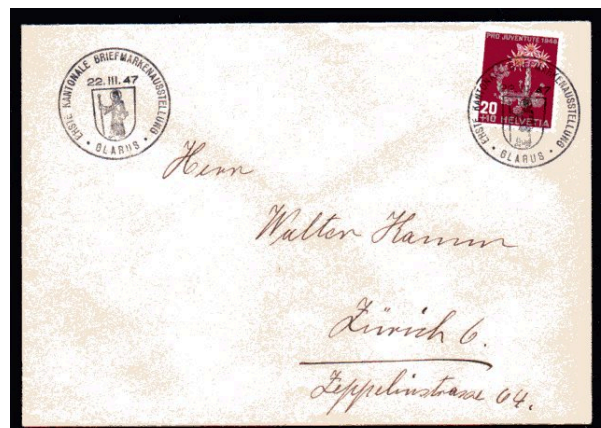 ERSTE KANTONALE BRIEFMARKENAUSSTELLUNG
22. III. 47
• GLARUS •
PRO JUVENTUTE 1946
20
+10 HELVETIA
ERSTE KANTONALE BRIEFMARKENAUSSTELLUNG
• GLARUS •
Herrn
Walter Kamm
Zürich 6.
Zeppelinstrasse 64.